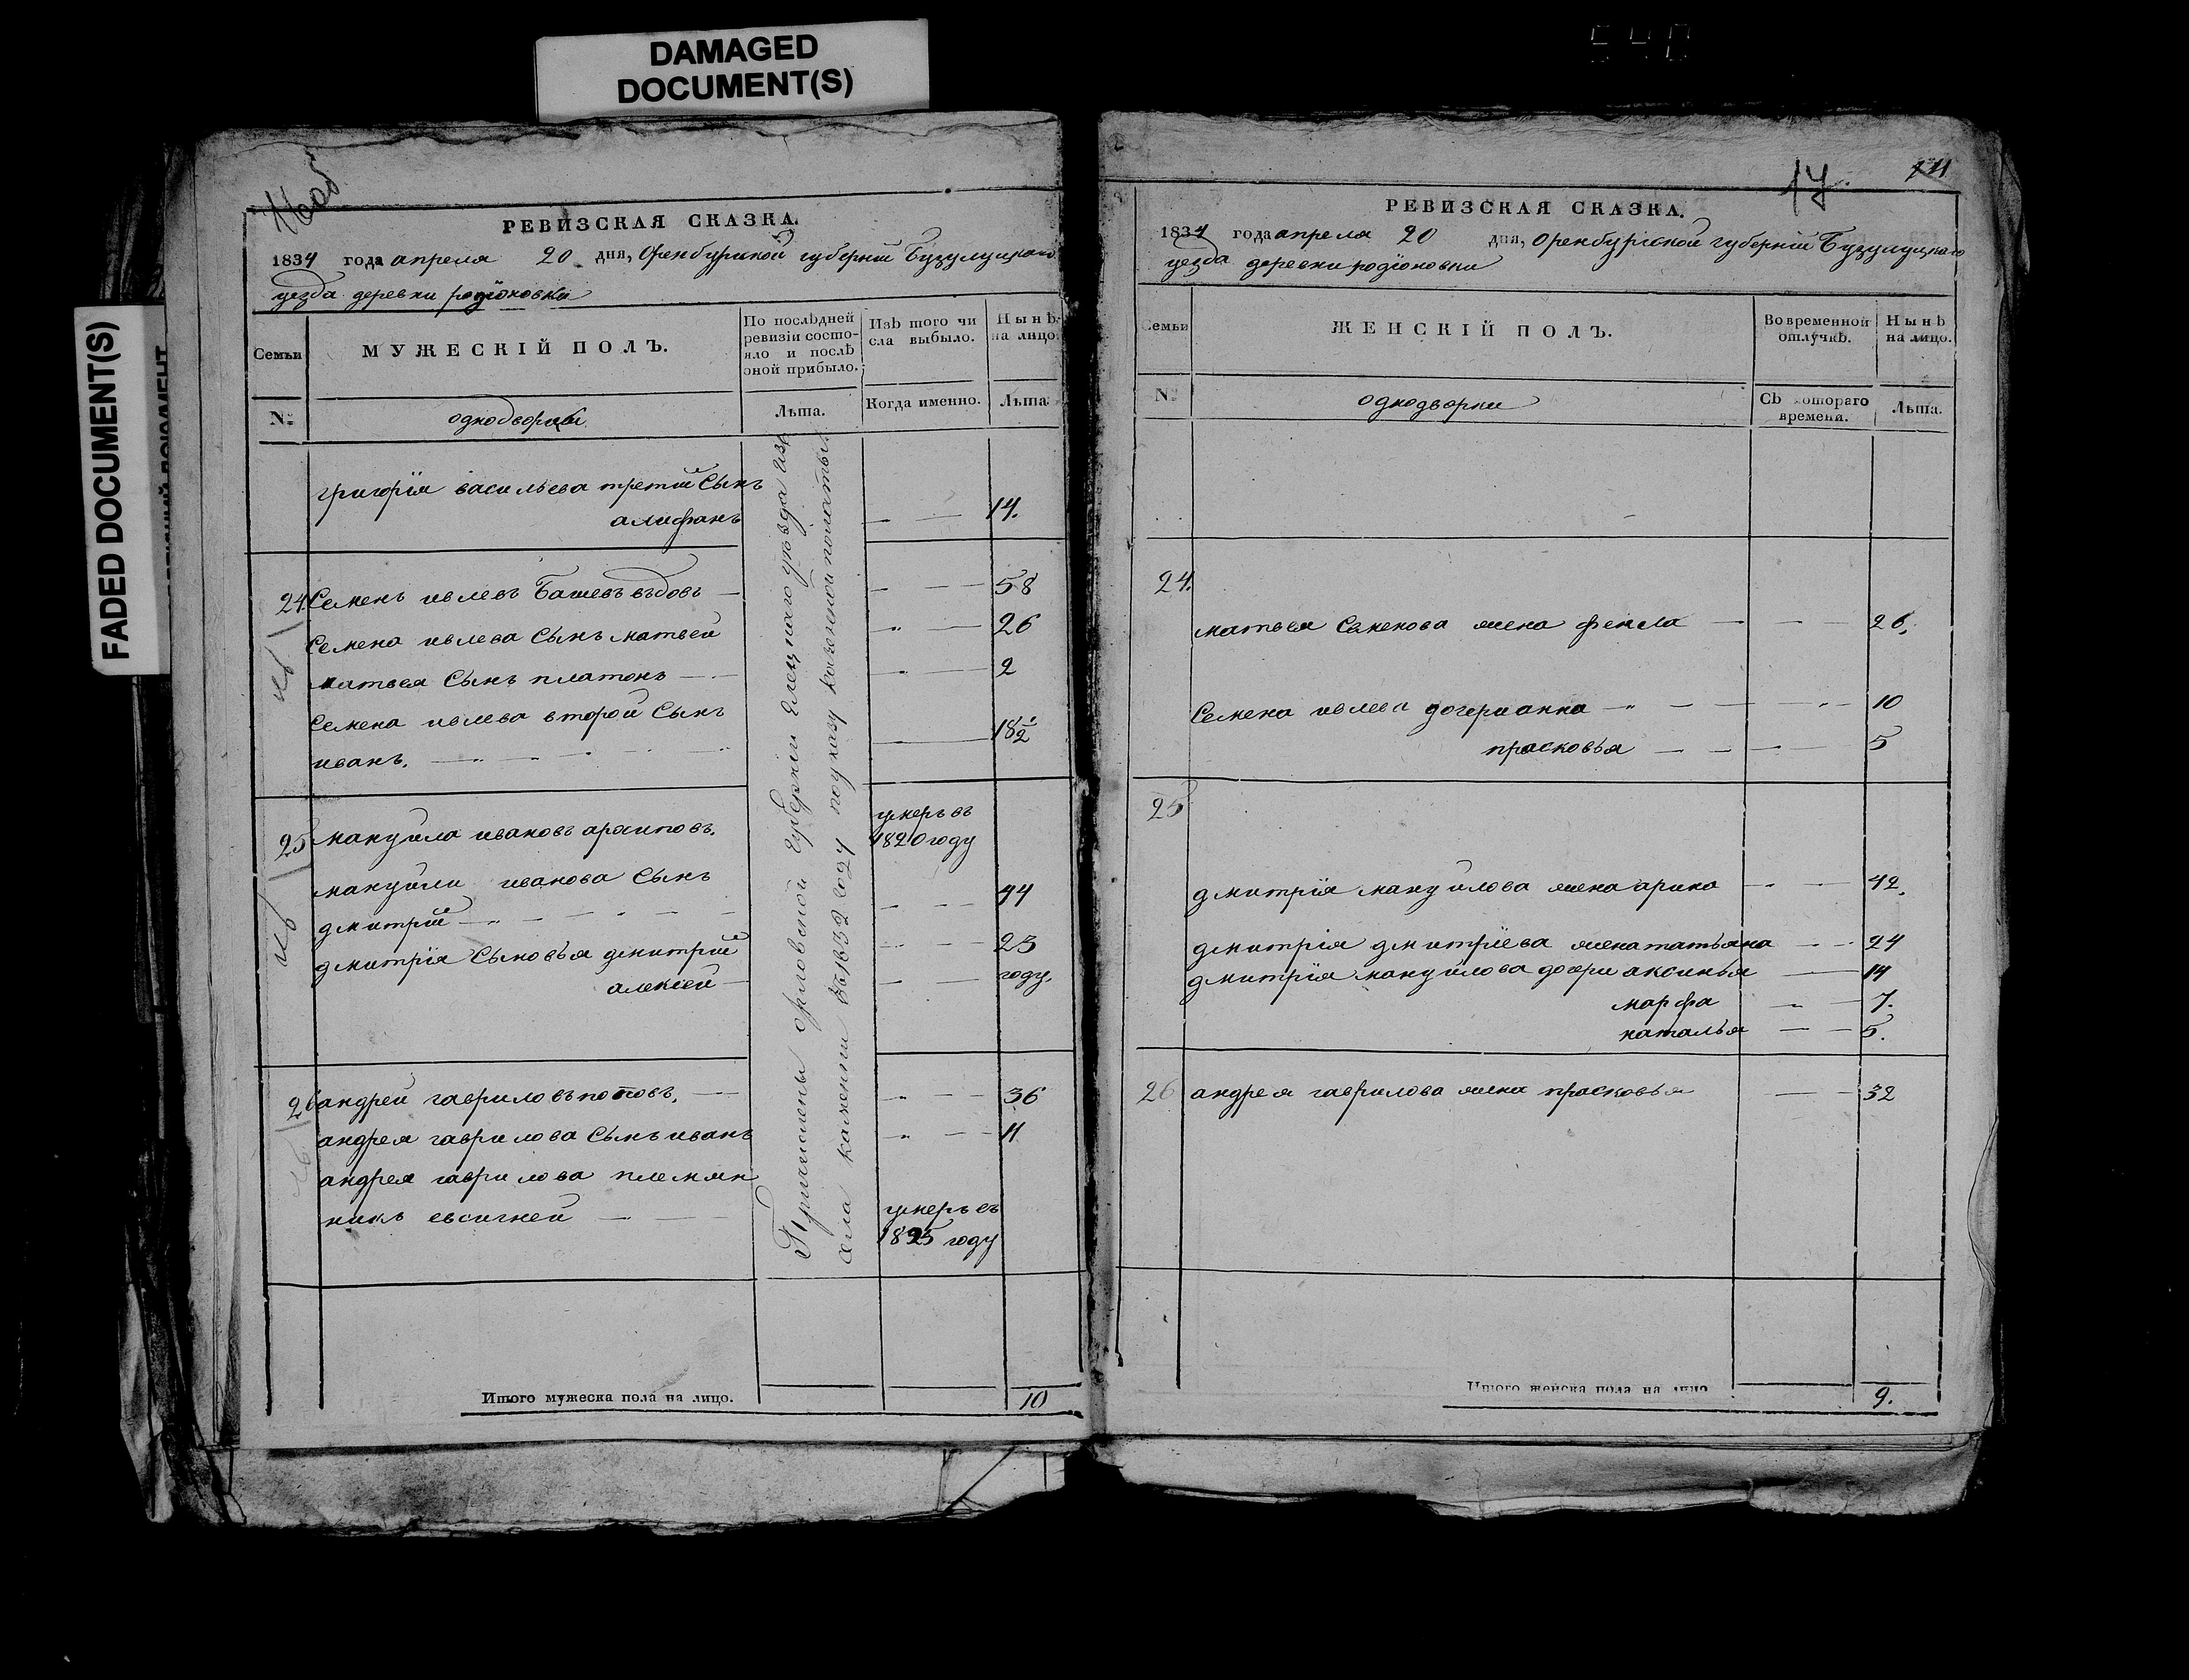 DAMAGED
DOCUMENT(S)
FADED DOCUMENT(S)
16об
РЕВИЗСКАЯ СКАЗКА.
1834 года апреля 20 дня, Оренбургской губернїи Бузулуцкаго
уезда деревни родїоновки
Семьи
МУЖЕСКІЙ ПОЛЪ.
По послѣдней
ревизіи состо-
яло и послѣ
оной прибыло.
Изъ того чи
сла выбыло.
Нынѣ
на лицо.
№
однодворцы
Лѣта.
Когда именно.
Лѣта.
григорїя васильева третий Сынъ
алифанъ 14.
24. Семенъ ивлевъ Башевъ вдовъ 58
Семена ивлева Сынъ матвей 26
матвея Сынъ платонъ 2
Семена ивлева второй Сынъ
иванъ. 18½
25 мануйла ивановъ архиповъ. умеръ въ
1820 году
мануйлы иванова Сынъ
дмитрий 44
дмитрїя Сыновья дмитрий 23
алексей году.
26 андрей гавриловъ поповъ. 36
андрея гаврилова Сынъ иванъ 11
андрея гаврилова племян
никъ евсигней умеръ въ
1825 году
Причислены орловской губернїи Елецкаго уѣзда изъ
села каменки въ 1832 году по указу казенной полаты
Итого мужеска пола на лицо. 10
17.
РЕВИЗСКАЯ СКАЗКА.
1834 года апреля 20 дня, Оренбургской губернїи Бузулуцкаго
уезда деревни родїоновки
Семьи
ЖЕНСКІЙ ПОЛЪ.
Во временной
отлучкѣ.
Нынѣ
на лицо.
№
однодворки
Съ котораго
времени.
Лѣта.
24.
матвея Семенова жена фекла 26.
Семена ивлева дочери анна 10
прасковья 5
25
дмитрїя мануйлова жена арина 42.
дмитрїя дмитрїева жена татьяна 24
дмитрїя мануйлова дочери аксинья 14
марфа 7.
наталья 5.
26 андрея гаврилова жена прасковья 32
Итого женска пола на лицо 9.